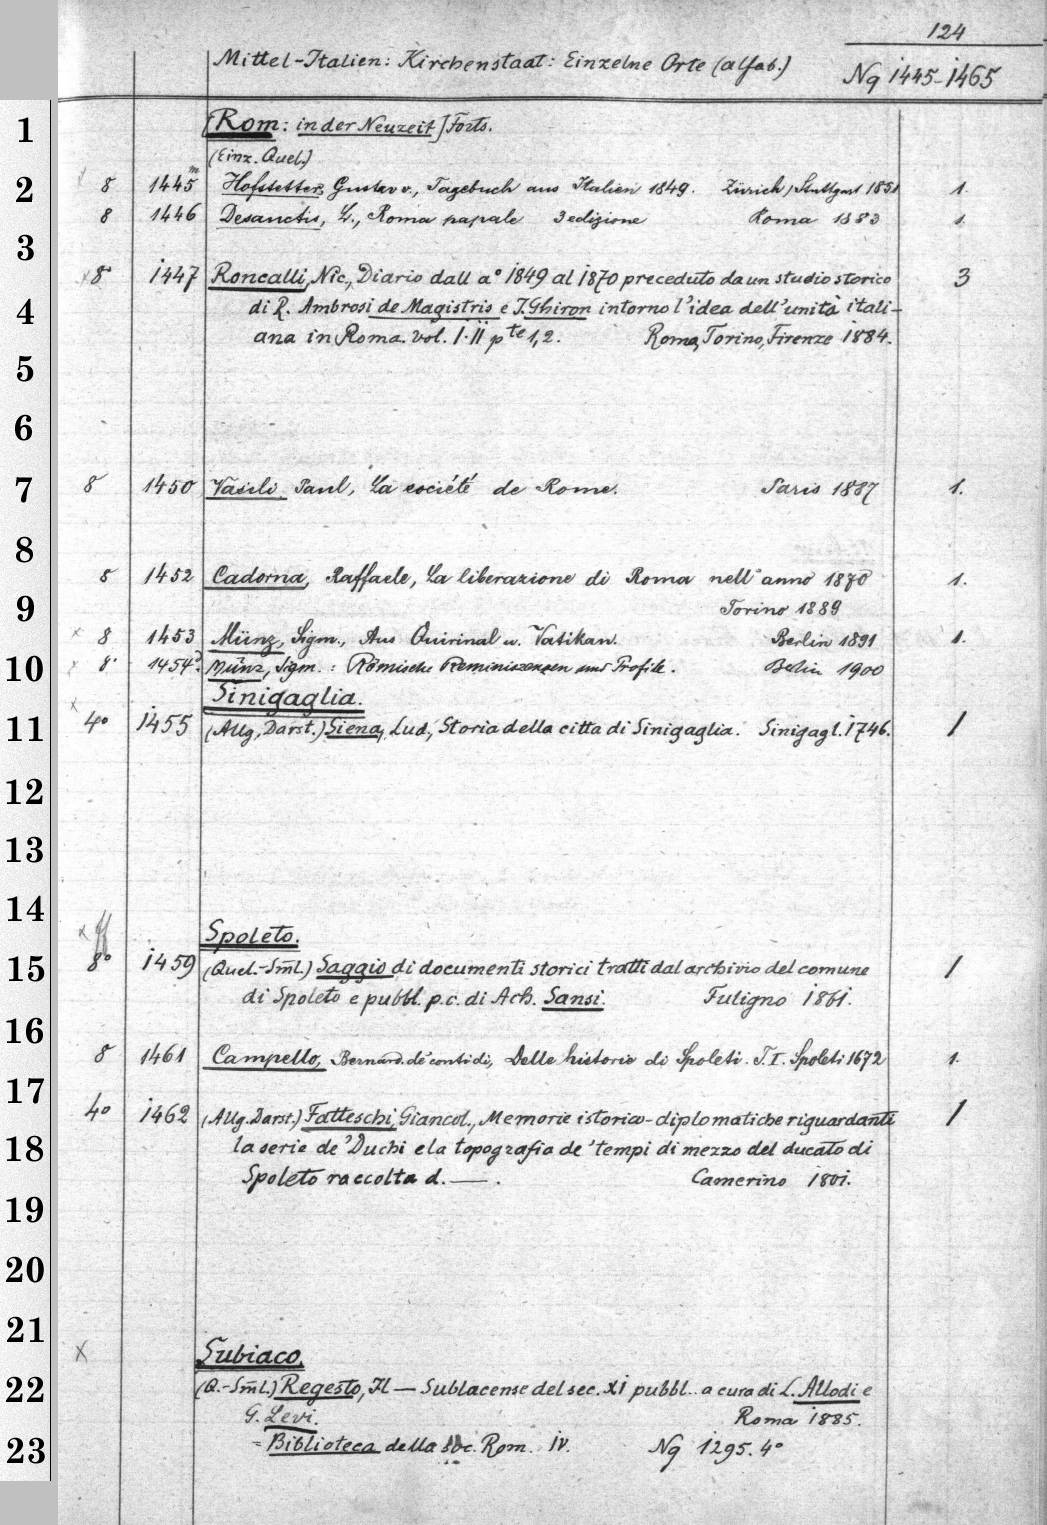 124
Mittel-Italien: Kirchenstaat: Einzelne Orte (alfab.)
Ng 1445-1465
1 [Rom: in der Neuzeit] Forts.
(Einz. Quel.)
2 x 8 1445m Hofstetter, Gustav v., Tagebuch aus Italien 1849. Zürich/Stuttgart 1851 1.
8 1446 Desanctis, L., Roma papale 3 edizione Roma 1883 1.
3 x8° 1447 Roncalli, Nic., Diario dall a° 1849 al 1870 preceduto da un studio storico 3
4 di R. Ambrosi de Magistris e I. Ghiron intorno l'idea dell'unità itali-
ana in Roma. vol. I.II pte 1,2. Roma, Torino, Firenze 1884.
5
6
7 8 1450 Vasili, Paul, La société de Rome. Paris 1887 1.
8
8 1452 Cadorna, Raffaele, La liberazione di Roma nell'anno 1870 1.
9 Torino 1889
x 8 1453 Münz, Sigm., Aus Quirinal u. Vatikan. Berlin 1891 1.
10 x 8° 1454 Münz, Sigm.: Römische Reminiszenzen und Profile. Berlin 1900
Sinigaglia.
11 x 4° 1455 (Allg. Darst.) Siena, Lud., Storia della citta di Sinigaglia. Sinigagl. 1746. 1
12
13
14
x Spoleto.
15 8° 1459 (Quel.-Sml.) Saggio di documenti storici tratti dal archivio del comune 1
di Spoleto e pubbl. p.c. di Ach. Sansi. Fuligno 1861.
16
8 1461 Campello, Bernard. de' conti di, Delle historie di Spoleti. T.I. Spoleti 1672 1.
17
4° 1462 (Allg. Darst.) Fatteschi, Giancol., Memorie istorico-diplomatiche riguardanti 1
18 la serie de' Duchi e la topografia de' tempi di mezzo del ducato di
Spoleto raccolta d. —. Camerino 1801.
19
20
21
x Subiaco.
22 (Q.-Sml.) Regesto, Il — Sublacense del sec. XI pubbl. a cura di L. Allodi e
G. Levi. Roma 1885.
23 = Biblioteca della soc. Rom. IV. Ng 1295. 4°